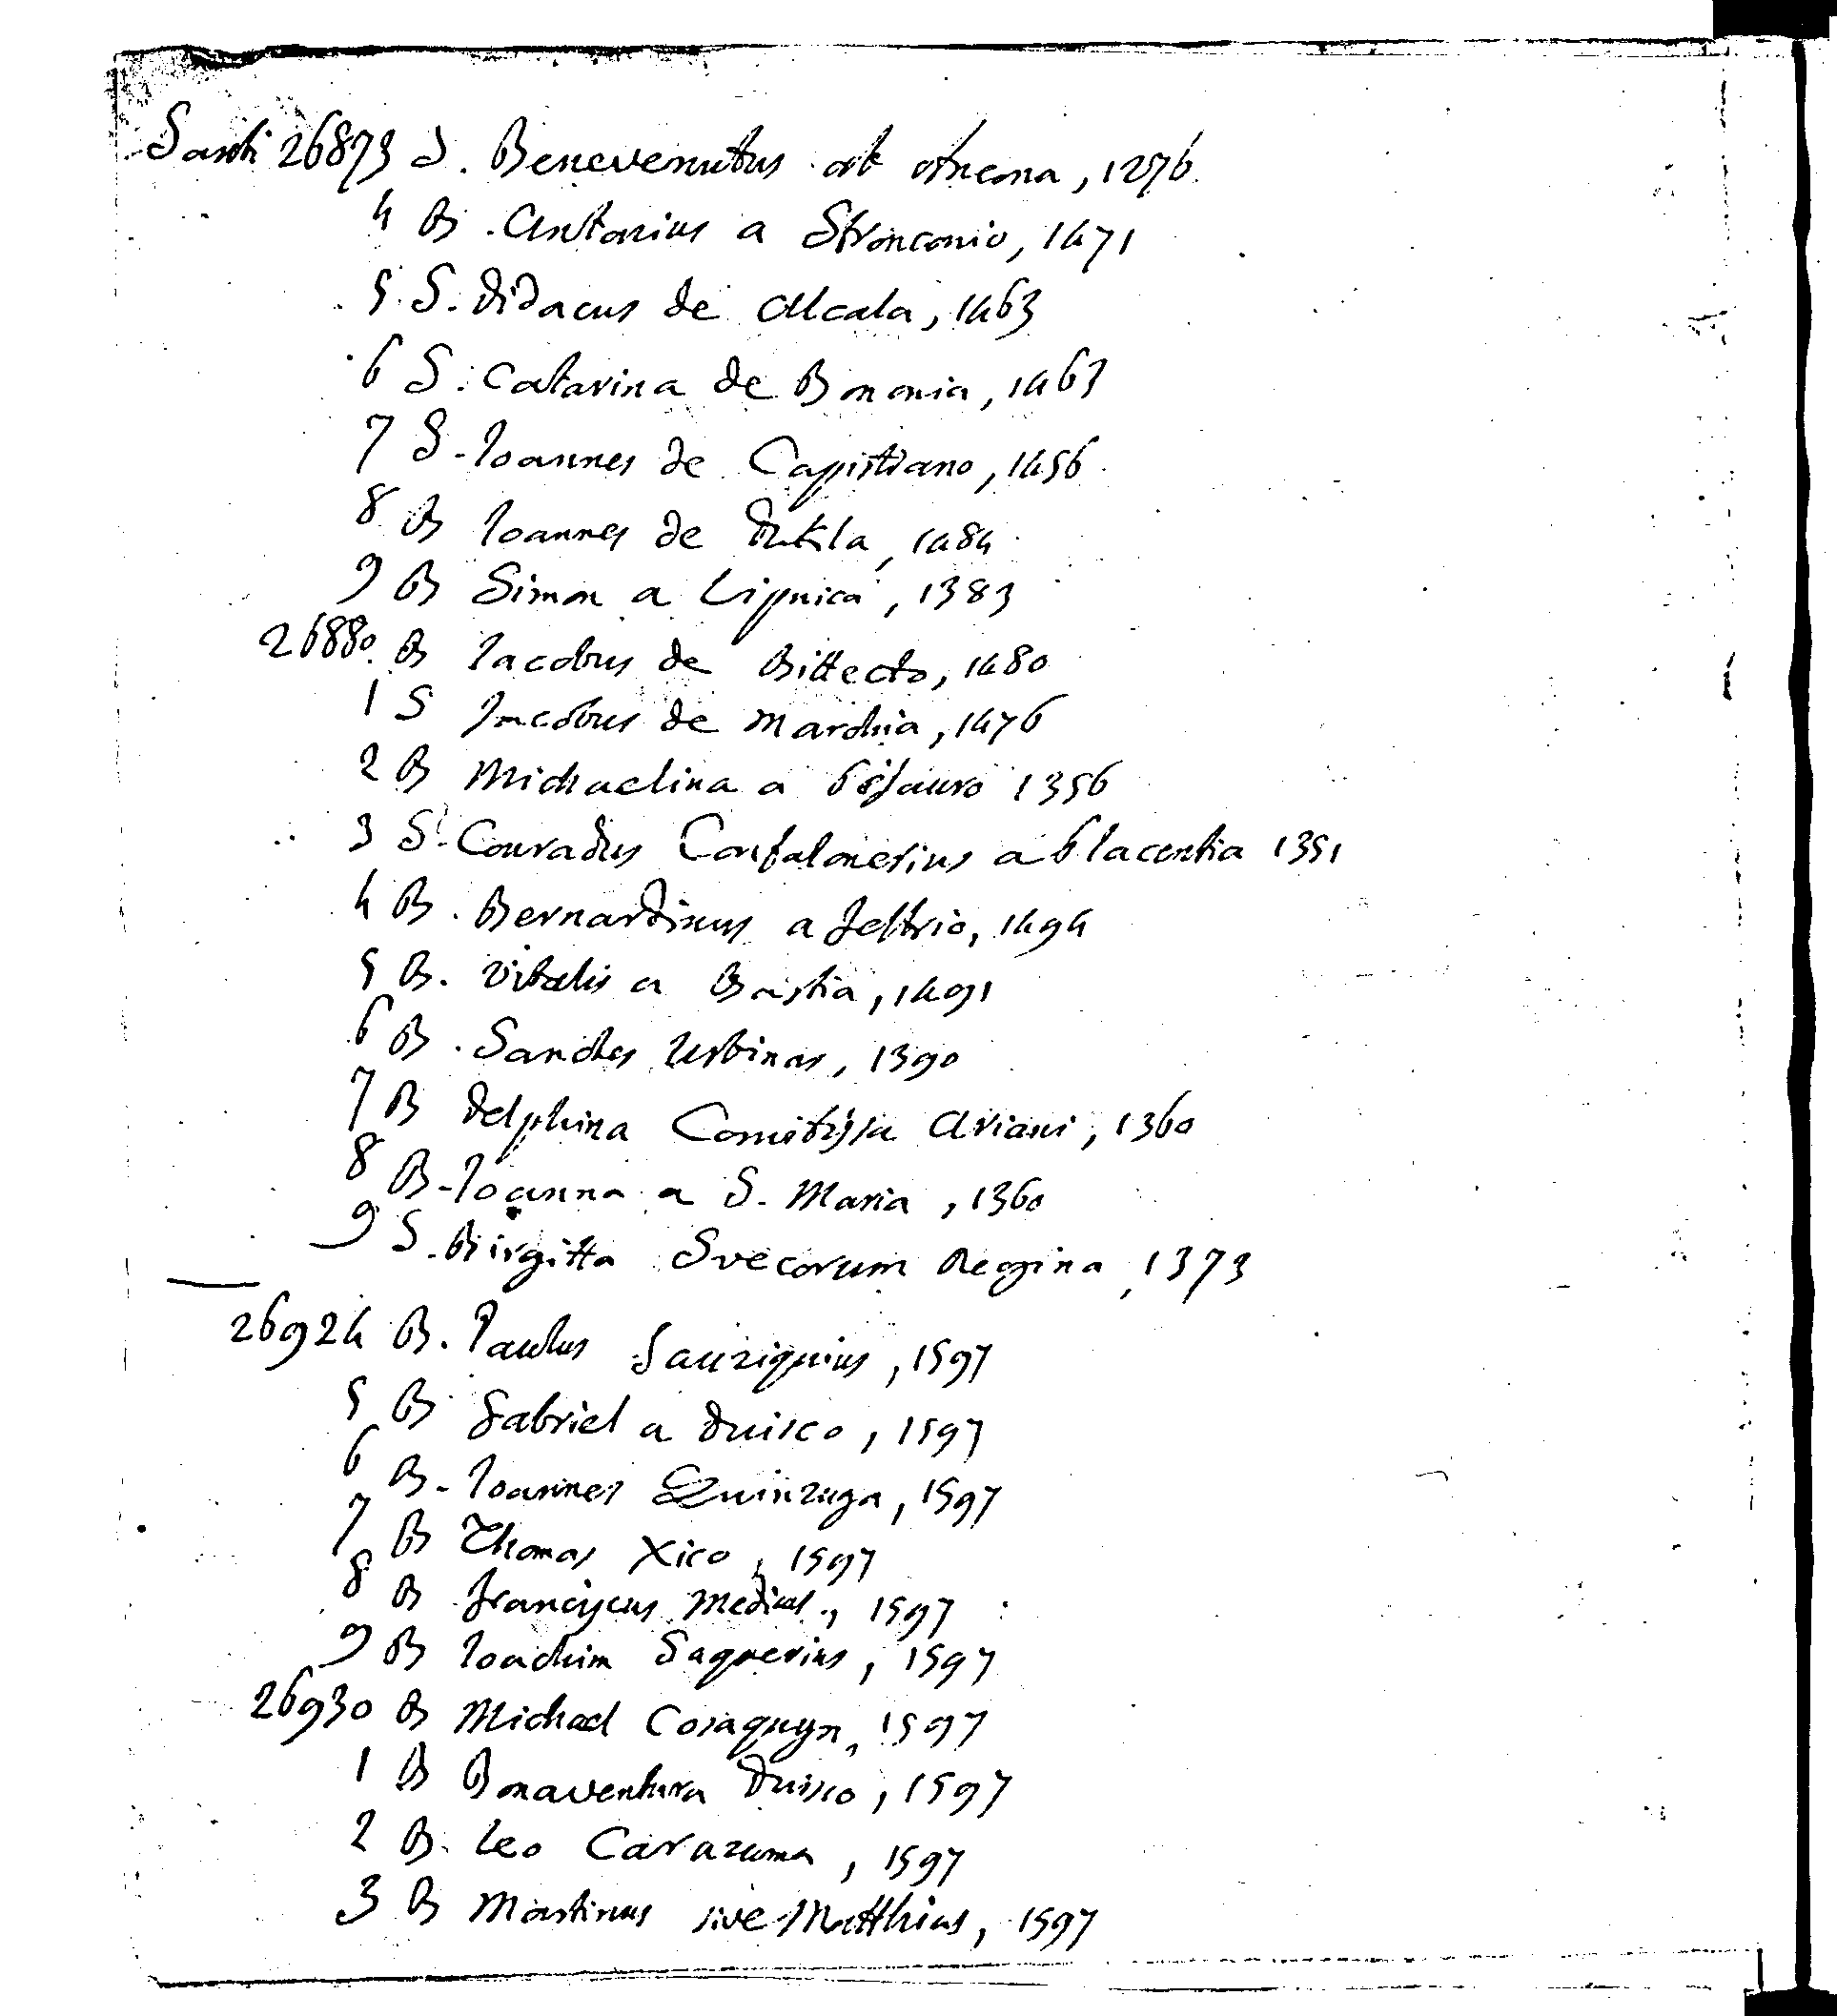 Santi 26873 S. Benevenutus ab Ancona, 1276
4 B. Antonius a Stronconio, 1471
5 S. Didacus de Alcala, 1463
6 S. Catarina de Bononia, 1463
7 S. Ioannes de Capistrano, 1456
8 B Ioannes de Dukla, 1484
9 B Simon a Lipnica, 1383
26880. B Iacobus de Bittecto, 1480
1 S Iacobus de Marchia, 1476
2 B Michaelina a Pisauro 1356
3 S. Conradus Confalonerius a Placentia 1351
4 B. Bernardinus a Feltrio, 1494
5 B. Vitalis a Bastia, 1491
6 B. Sanctes Urbinas, 1390
7 B Delphina Comitissa Ariani, 1360
8 B. Ioanna a S. Maria, 1360
9 S. Birgitta Svecorum Regina, 1373
26924 B. Paulus Sauziquius, 1597
5 B Gabriel a Duisco, 1597
6 B. Ioannes Quinzuga, 1597
7 B Thomas Xico, 1597
8 B Franciscus Medicus, 1597
9 B Ioachim Saquerius, 1597
26930 B Michael Cosaquyn, 1597
1 B Bonaventura Duisco, 1597
2 B. Leo Carazuma, 1597
3 B Martinus sive Matthias, 1597